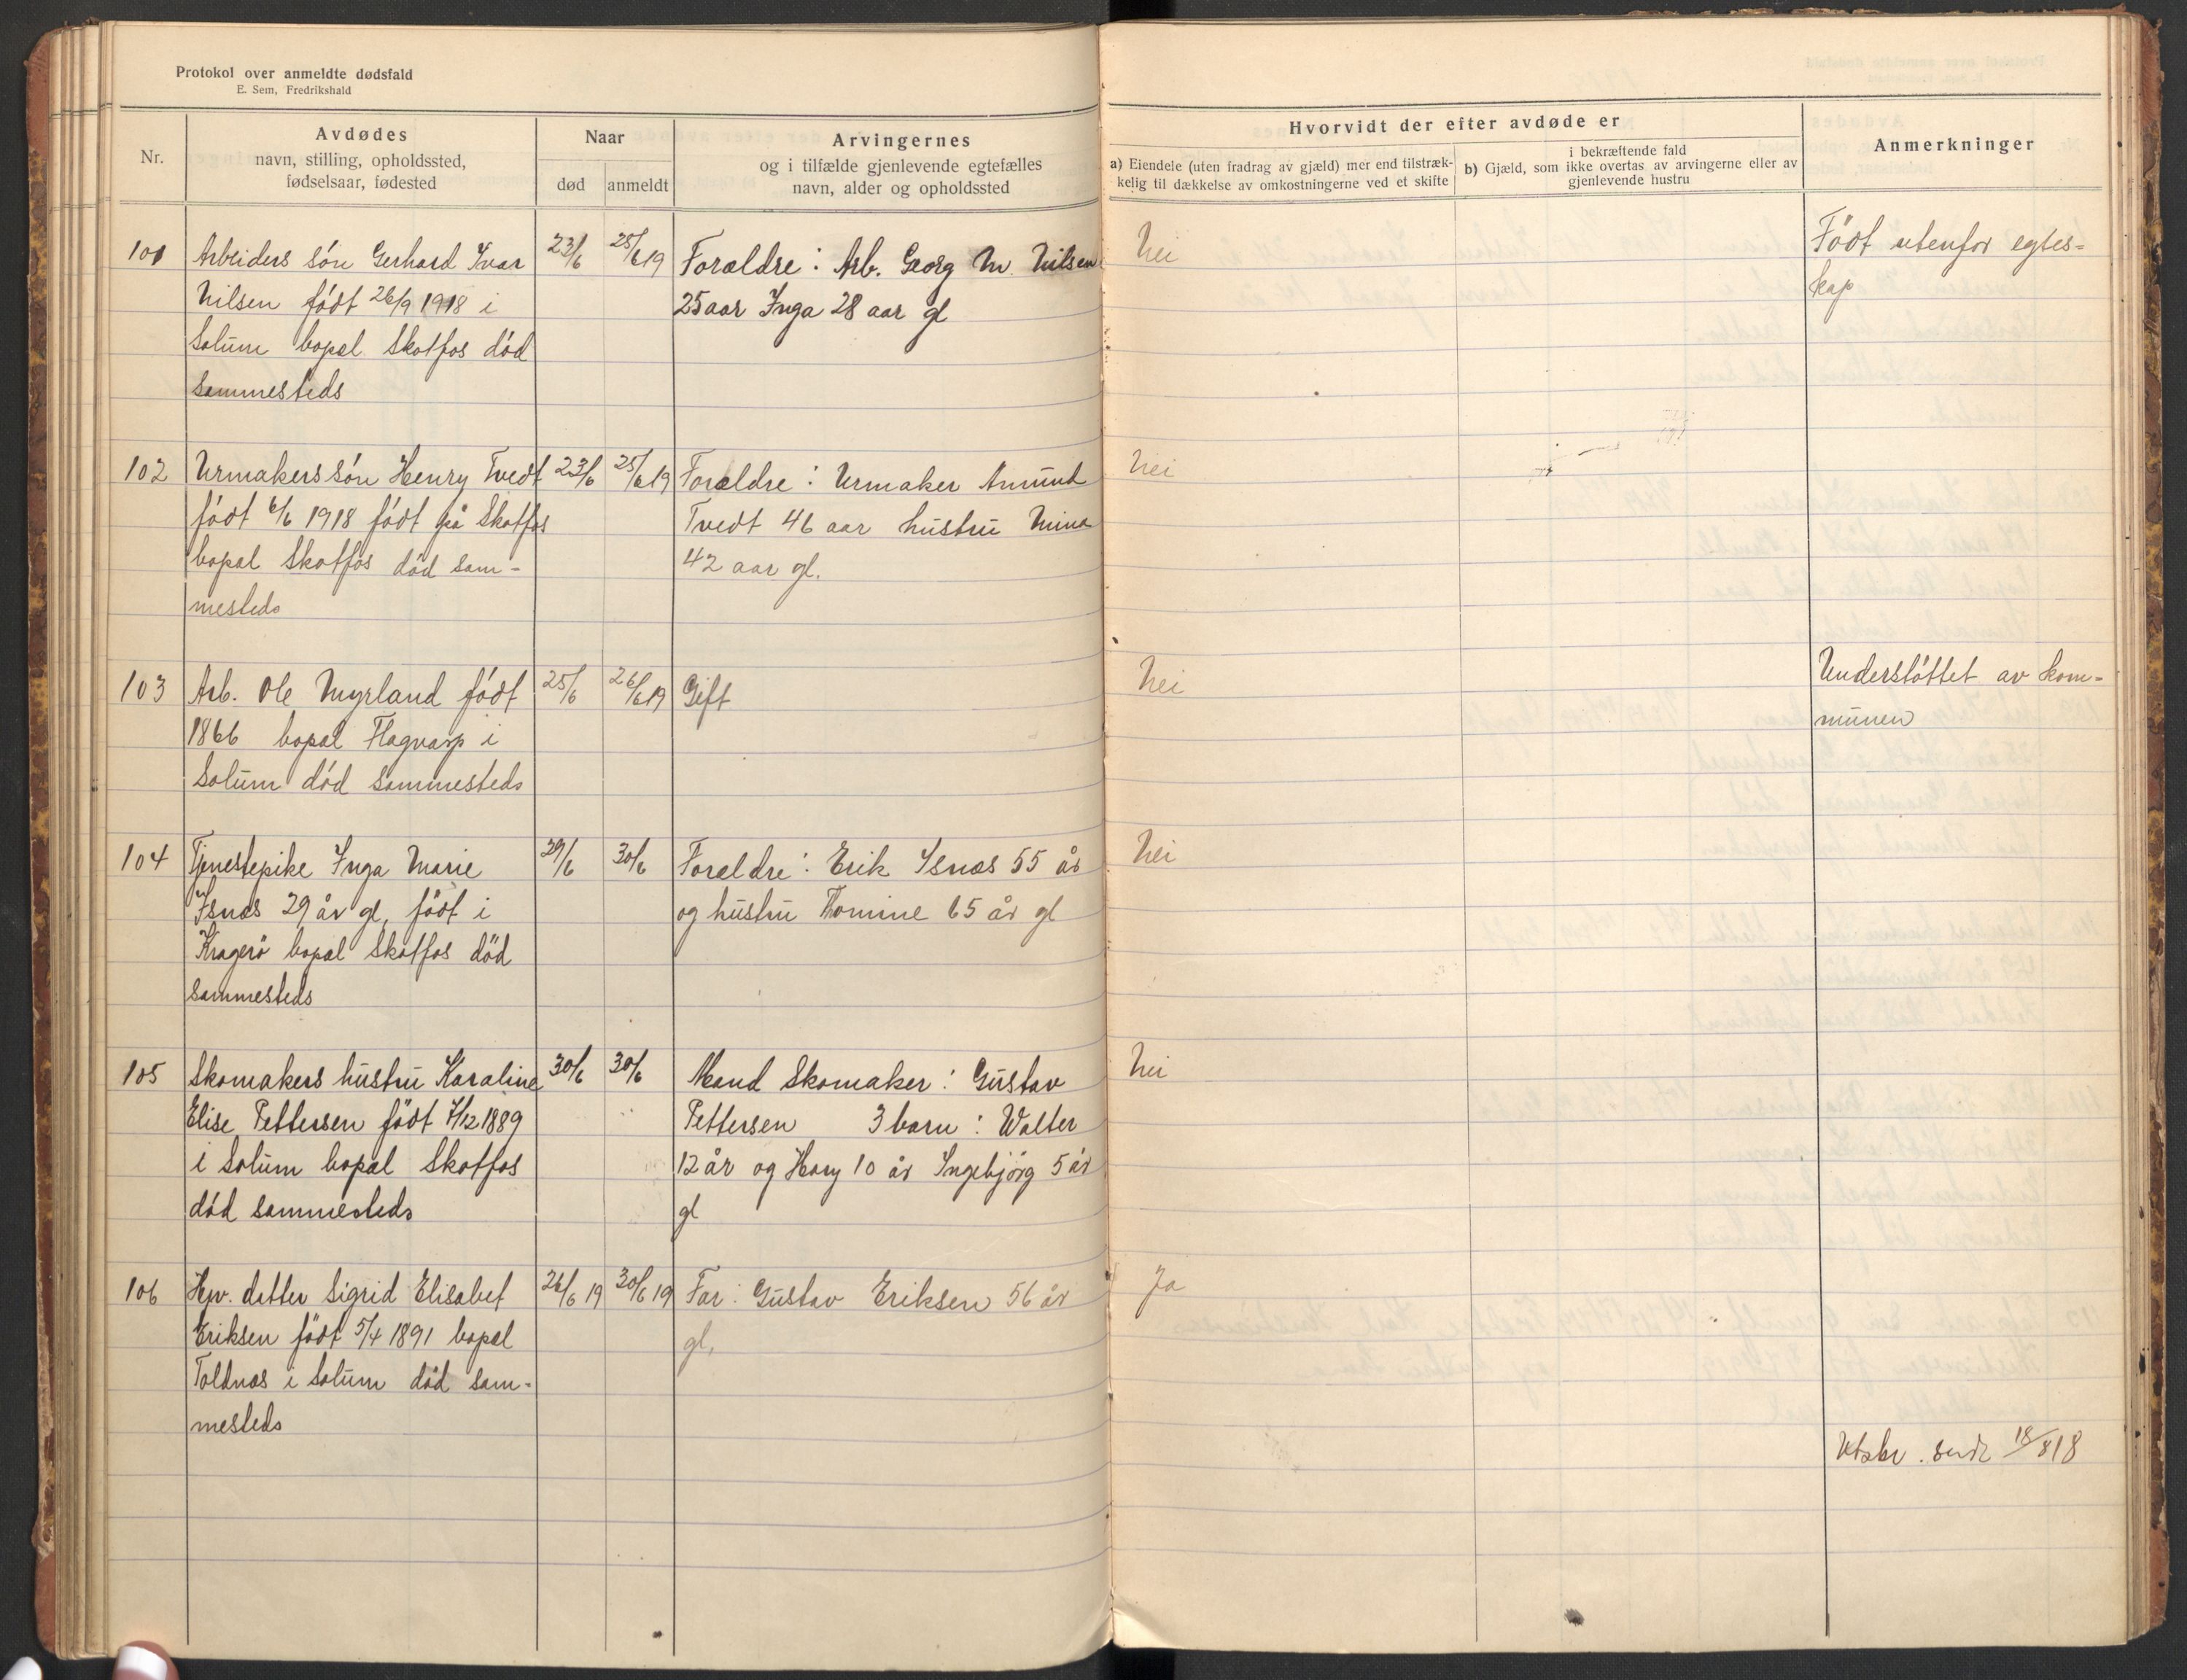 Protokol over anmeldte dødsfald
E. Sem, Fredrikshald
Nr.
Avdødes
navn, stilling, opholdssted,
fødselsaar, fødested
Naar
død
anmeldt
Arvingernes
og i tilfælde gjenlevende egtefælles
navn, alder og opholdssted
Hvorvidt der efter avdøde er
a) Eiendele (uten fradrag av gjæld) mer end tilstræk-
kelig til dækkelse av omkostningerne ved et skifte
i bekræftende fald
b) Gjæld, som ikke overtas av arvingerne eller av
gjenlevende hustru
Anmerkninger
101 Arbeiders sön Gerhard Ivar 23/6 25/6 19 Forældre: Arb. Georg M. Nilsen Nei Födt utenfor egtes-
Nilsen födt 26/9 1918 i 25 aar Inga 28 aar gl kap
Solum bopæl Skotfos död
sammesteds
102 Urmakers sön Henry Tvedt 23/6 25/6 19 Forældre: Urmaker Amund Nei
födt 6/6 1918 födt på Skotfos Tvedt 46 aar hustru Mina
bopæl Skotfos död sam- 42 aar gl.
mesteds
103 Arb. Ole Myrland födt 25/6 26/6 19 Gift Nei Understöttet av kom-
1866 bopæl Flagvarp i munen
Solum död sammesteds
104 Tjenestepike Inga Marie 29/6 30/6 Forældre: Erik Isnæs 55 år Nei
Isnæs 29 år gl, födt i og hustru Tomine 65 år gl
Kragerö bopæl Skotfos död
sammesteds
105 Skomakers hustru Karaline 30/6 30/6 Mand Skomaker: Gustav Nei
Elise Pettersen födt 7/12 1889 Pettersen 3 barn: Walter
i Solum bopæl Skotfos 12 år og Hary 10 år Ingebjörg 5 år
död sammesteds gl
106 Hjv. datter Sigrid Elisabet 26/6 19 30/6 19 Far: Gustav Eriksen 56 år Ja
Eriksen födt 5/4 1891 bopæl gl,
Toldnæs i Solum död sam-
mesteds
sendt 18/8 18